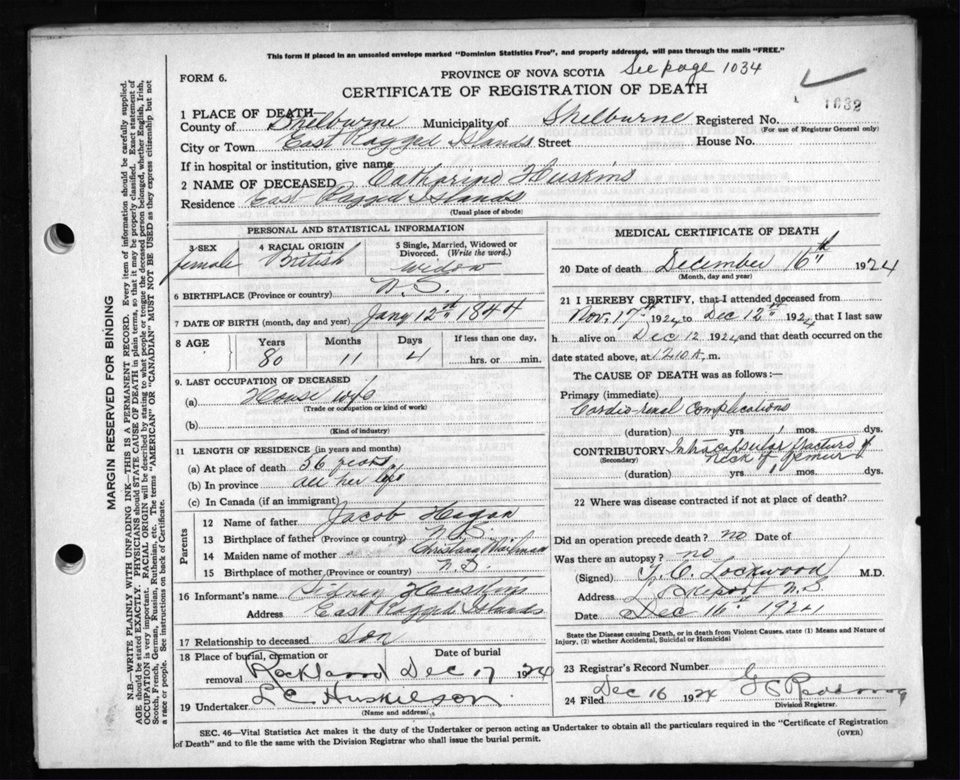 This form if placed in an unsealed envelope marked "Dominion Statistics Free", and properly addressed, will pass through the mails "FREE."
FORM 6.
PROVINCE OF NOVA SCOTIA See page 1034
CERTIFICATE OF REGISTRATION OF DEATH
1 PLACE OF DEATH
County of Shelburne Municipality of Shelburne Registered No.
(For use of Registrar General only)
City or Town East Ragged Islands Street House No.
If in hospital or institution, give name
2 NAME OF DECEASED Catharine Huskins
Residence East Ragged Islands
(Usual place of abode)
PERSONAL AND STATISTICAL INFORMATION
3 SEX 4 RACIAL ORIGIN 5 Single, Married, Widowed or Divorced. (Write the word.)
female British Widow
6 BIRTHPLACE (Province or country) N.S.
7 DATE OF BIRTH (month, day and year) Jany 12th 1844
8 AGE Years Months Days If less than one day,
80 11 4 hrs. or min.
9. LAST OCCUPATION OF DECEASED
(a) House wife
(Trade or occupation or kind of work)
(b)
(Kind of industry)
11 LENGTH OF RESIDENCE (in years and months)
(a) At place of death 56 years
(b) In province all her life
(c) In Canada (if an immigrant)
Parents
12 Name of father Jacob Hagan
13 Birthplace of father (Province or country) N.S.
14 Maiden name of mother Christiana
15 Birthplace of mother (Province or country) N.S.
16 Informant's name Huskins
Address East Ragged Islands
17 Relationship to deceased Son
18 Place of burial, cremation or removal Date of burial
Rockland Dec 17 1924
19 Undertaker L C Huskilson
(Name and address)
MEDICAL CERTIFICATE OF DEATH
20 Date of death December 16th 1924
(Month, day and year)
21 I HEREBY CERTIFY, that I attended deceased from
Nov. 17th 1924 to Dec 12th 1924 that I last saw
h alive on Dec 12 1924 and that death occurred on the
date stated above, at 12.10 A. m.
The CAUSE OF DEATH was as follows:—
Primary (immediate)
Cardio-renal Complications
(duration) yrs 1 mos. dys.
CONTRIBUTORY Intracapsular fracture of
(Secondary) neck of femur
(duration) yrs 1 mos. dys.
22 Where was disease contracted if not at place of death?
Did an operation precede death? no Date of
Was there an autopsy? no
(Signed) Lockwood M.D.
Address Lockeport N.S.
Date Dec 16th 1924
State the Disease causing Death, or in death from Violent Causes, state (1) Means and Nature of Injury, (2) whether Accidental, Suicidal or Homicidal
23 Registrar's Record Number
24 Filed Dec 16 1924 G C
Division Registrar.
SEC. 46—Vital Statistics Act makes it the duty of the Undertaker or person acting as Undertaker to obtain all the particulars required in the "Certificate of Registration
of Death" and to file the same with the Division Registrar who shall issue the burial permit. (OVER)
MARGIN RESERVED FOR BINDING
N.B.—WRITE PLAINLY WITH UNFADING INK—THIS IS A PERMANENT RECORD. Every item of information should be carefully supplied.
AGE should be stated EXACTLY. PHYSICIANS should STATE CAUSE OF DEATH in plain terms, so that it may be properly classified. Exact statement of
OCCUPATION is very important. RACIAL ORIGIN will be described by stating to what people or tongue the deceased person belonged, whether English, Irish,
Scotch, French, German, Russian, Ruthenian, etc. The terms "AMERICAN" or "CANADIAN" MUST NOT BE USED as they express citizenship but not
a race or people. See instructions on back of Certificate.